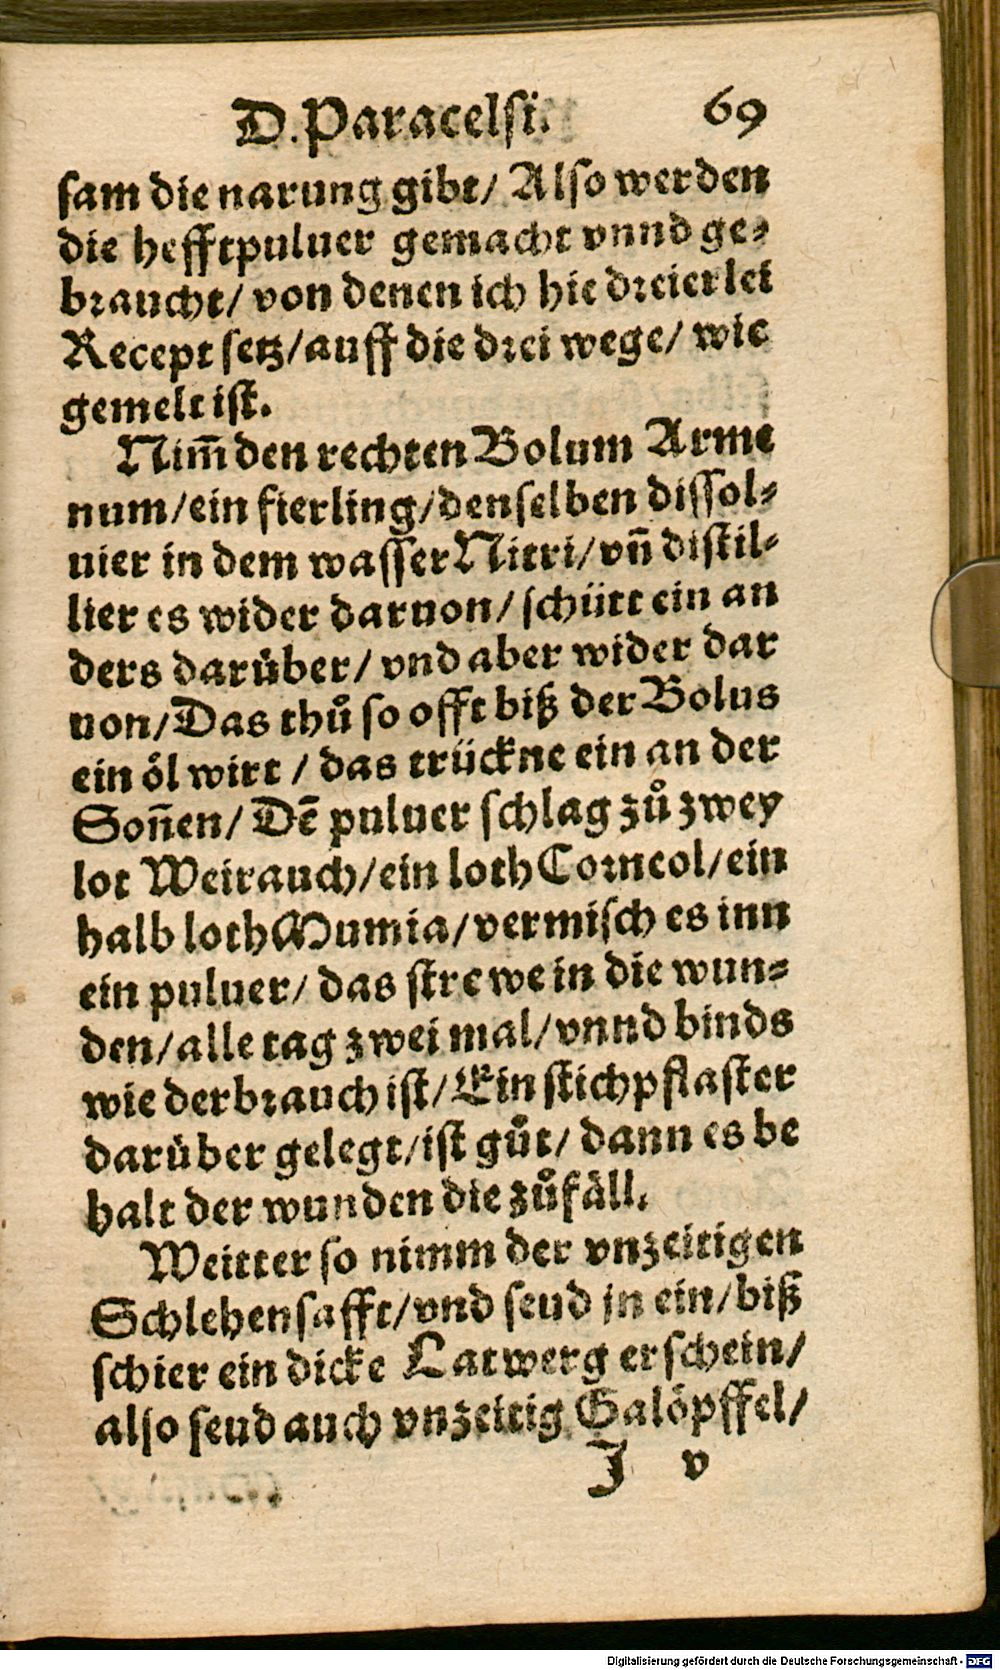 D. Paracelsi. 69
sam die narung gibt/ Also werden
die hefftpuluer gemacht vnnd ge-
braucht/ von denen ich hie dreierlei
Recept setz/ auff die drei wege/ wie
gemelt ist.
Nim̃ den rechten Bolum Arme
num/ ein fierling/ denselben dissol-
uier in dem wasser Nitri/ vñ distil-
lier es wider daruon/ schütt ein an
ders darüber/ vnd aber wider dar
uon/ Das thů so offt biß der Bolus
ein öl wirt / das trückne ein an der
Soñen/ Dẽ puluer schlag zů zwey
lot Weirauch/ ein loth Corneol/ ein
halb loth Mumia/ vermisch es inn
ein puluer/ das strewe in die wun-
den/ alle tag zwei mal/ vnnd binds
wie der brauch ist/ Ein stichpflaster
darüber gelegt/ ist gůt/ dann es be
halt der wunden die zůfäll.
Weitter so nimm der vnzeitigen
Schlehensafft/ vnd seud jn ein/ biß
schier ein dicke Latwerg erschein/
also seud auch vnzeitig Galöpffel/
J v
Digitalisierung gefördert durch die Deutsche Forschungsgemeinschaft - DFG